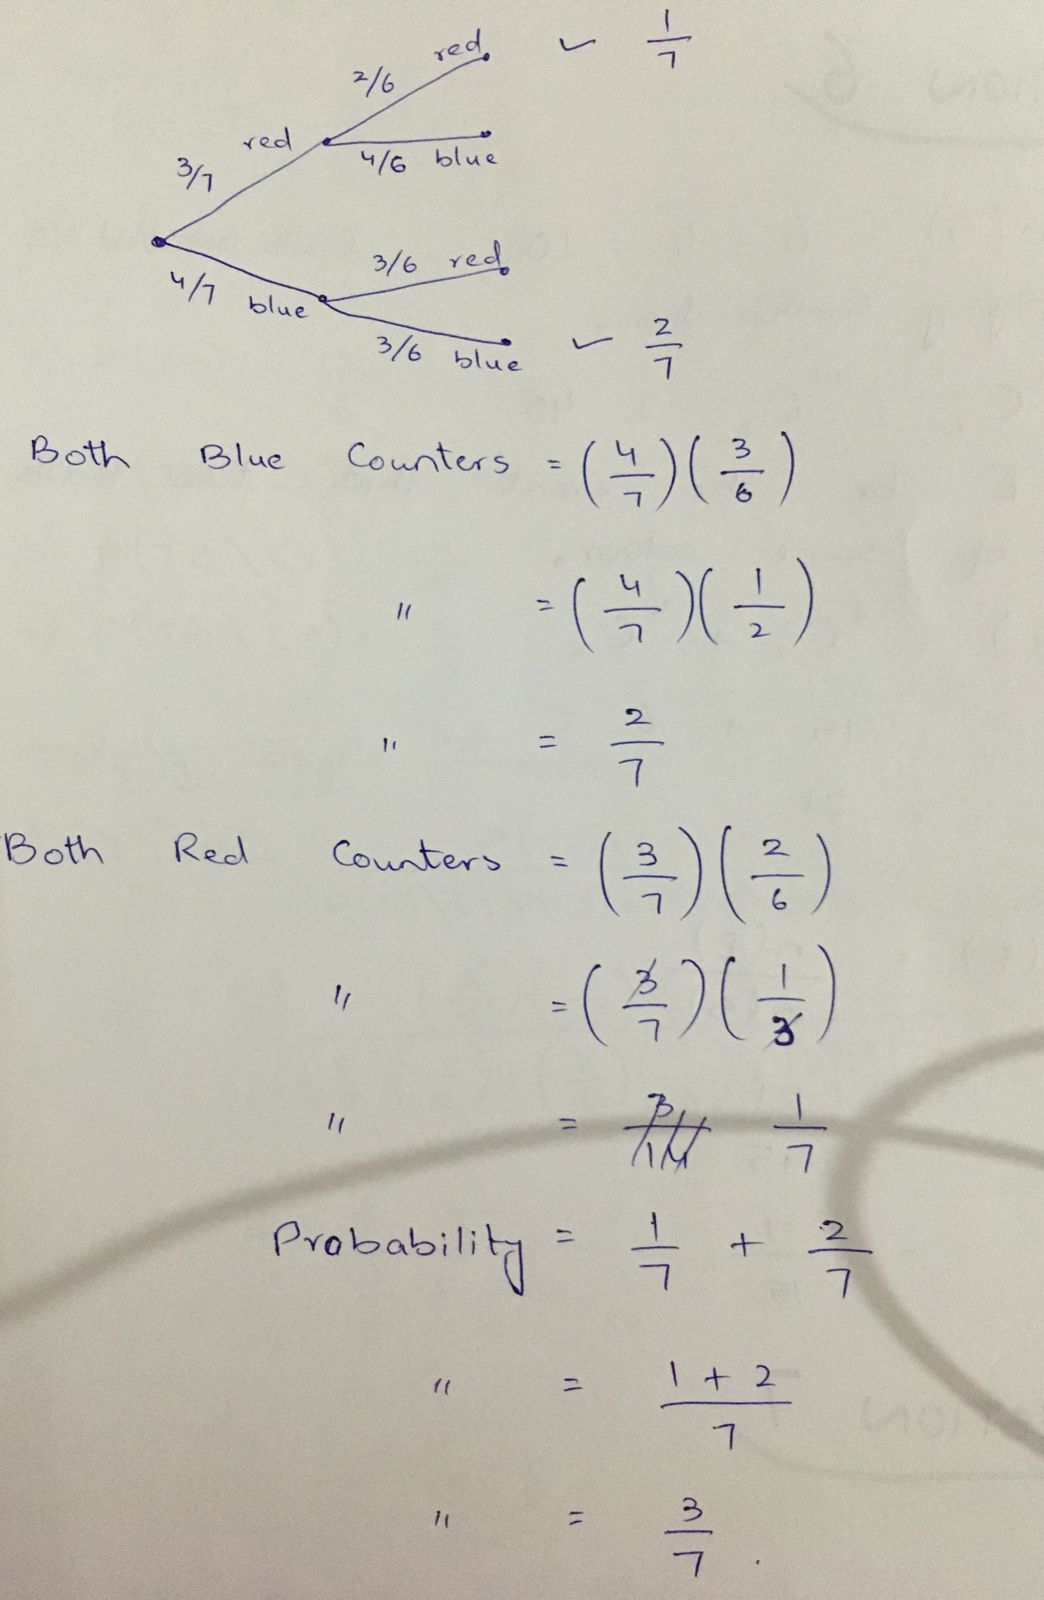 red ✓ 1/7
2/6
red
4/6 blue
3/7
3/6 red
4/7 blue
3/6 blue ✓ 2/7
Both Blue Counters = (4/7)(3/6)
" = (4/7)(1/2)
" = 2/7
Both Red Counters = (3/7)(2/6)
" = (3/7)(1/3)
" = 1/7
Probability = 1/7 + 2/7
" = 1 + 2/7
" = 3/7 .